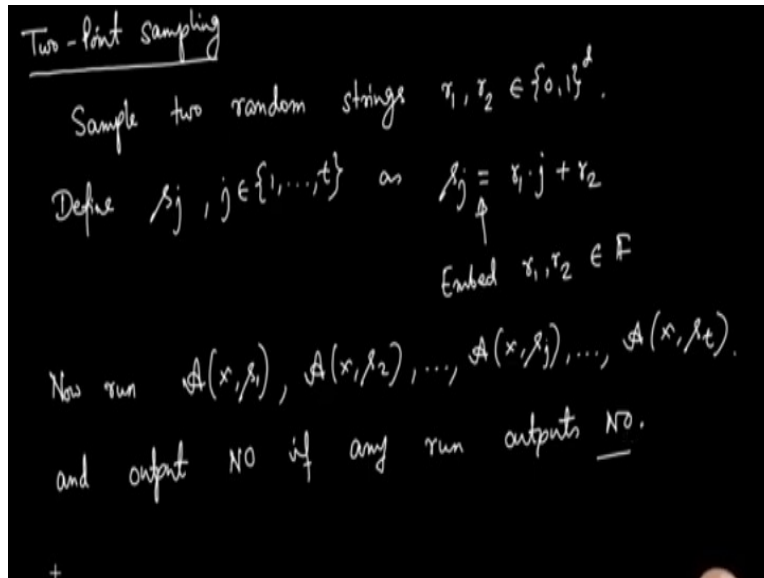 Two-Point Sampling
Sample two random strings r₁, r₂ ∈ {0,1}ᵈ.
Define sj, j∈{1,...,t} as sj = r₁·j + r₂
Embed r₁, r₂ ∈ F
Now run A(x,s₁), A(x,s₂), ..., A(x,sj), ..., A(x,st).
and output NO if any run outputs NO.